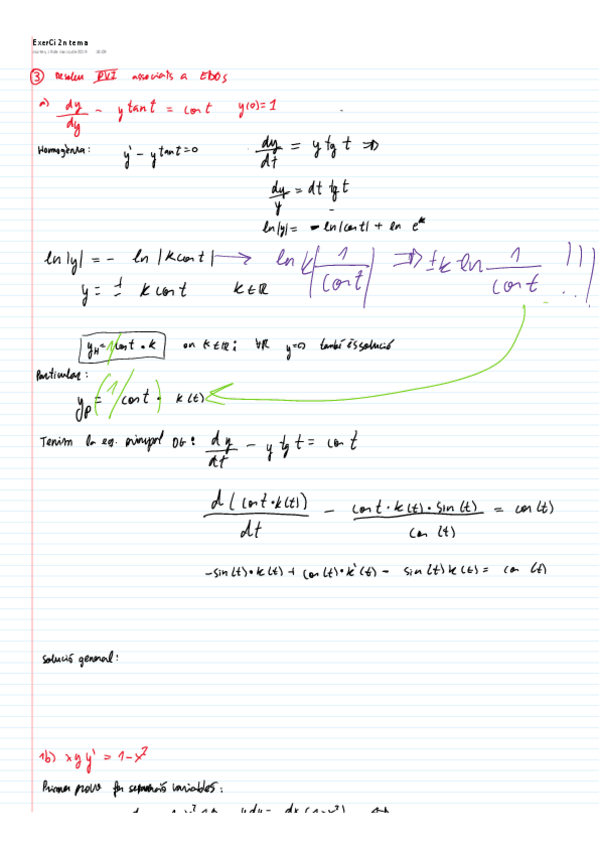 ExerCi 2n tema
③ Resoleu PVI associats a EDOs
a) dy/dy - y tan t = cos t y(0)=1
Homogènia: y' - y tan t = 0 dy/dt = y tg t ⇒
dy/y = dt tg t
ln|y| = - ln|cos t| + ln e^k
ln|y| = - ln|k cos t| → ln k|1/cos t| ⇒ ±k ln 1/cos t ...
y = ± k cos t k∈R
y_H = 1/cos t • k on k∈R; y=0 també és solució
Particular:
y_p = (1/cos t) • k(t)
Tenim la eq. principal DG: dy/dt - y tg t = cos t
d(cos t • k(t))/dt - cos t • k(t) • sin(t)/cos(t) = cos(t)
-sin(t) • k(t) + cos(t) • k'(t) - sin(t) k(t) = cos(t)
Solució general:
1b) x y y' = 1-x²
Primer provo fer separació variables: